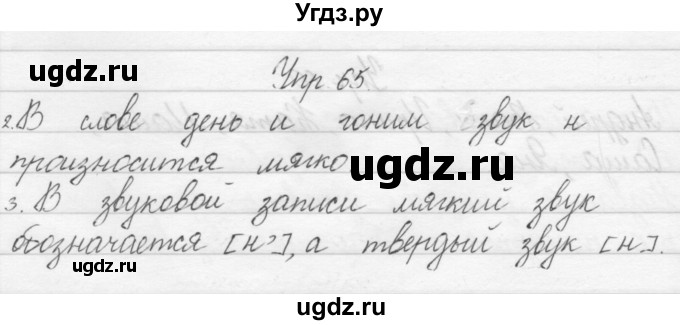 Угдз.ру
ugdz.ru
Упр 65
ugdz.ru
2. В слове день и гоним звук н
произносится мягко
ugdz.ru
3. В звуковой записи мягкий звук
обозначается [н'], а твердый звук [н].
ugdz.ru
ugdz.ru
ugdz.ru